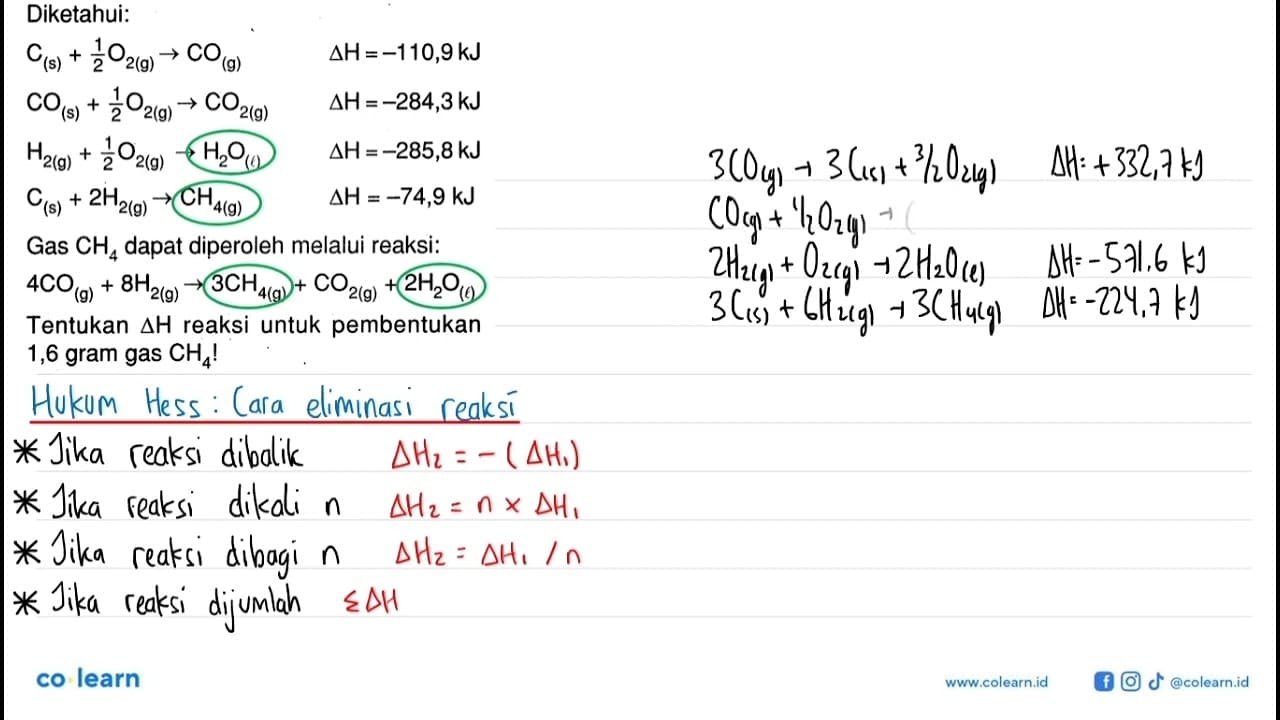 Diketahui:
C(s) + 1/2 O2(g) → CO(g) ΔH = –110,9 kJ
CO(s) + 1/2 O2(g) → CO2(g) ΔH = –284,3 kJ
H2(g) + 1/2 O2(g) → H2O(l) ΔH = –285,8 kJ
C(s) + 2H2(g) → CH4(g) ΔH = –74,9 kJ
Gas CH4 dapat diperoleh melalui reaksi:
4CO(g) + 8H2(g) → 3CH4(g) + CO2(g) + 2H2O(l)
Tentukan ΔH reaksi untuk pembentukan
1,6 gram gas CH4!
3CO(g) → 3C(s) + 3/2 O2(g) ΔH: + 332,7 kJ
CO(g) + 1/2 O2(g) → (
2H2(g) + O2(g) → 2H2O(l) ΔH = -571.6 kJ
3C(s) + 6H2(g) → 3CH4(g) ΔH = -224,7 kJ
Hukum Hess : Cara eliminasi reaksi
* Jika reaksi dibalik ΔH2 = - (ΔH1)
* Jika reaksi dikali n ΔH2 = n x ΔH1
* Jika reaksi dibagi n ΔH2 = ΔH1 / n
* Jika reaksi dijumlah ΣΔH
co learn
www.colearn.id @colearn.id